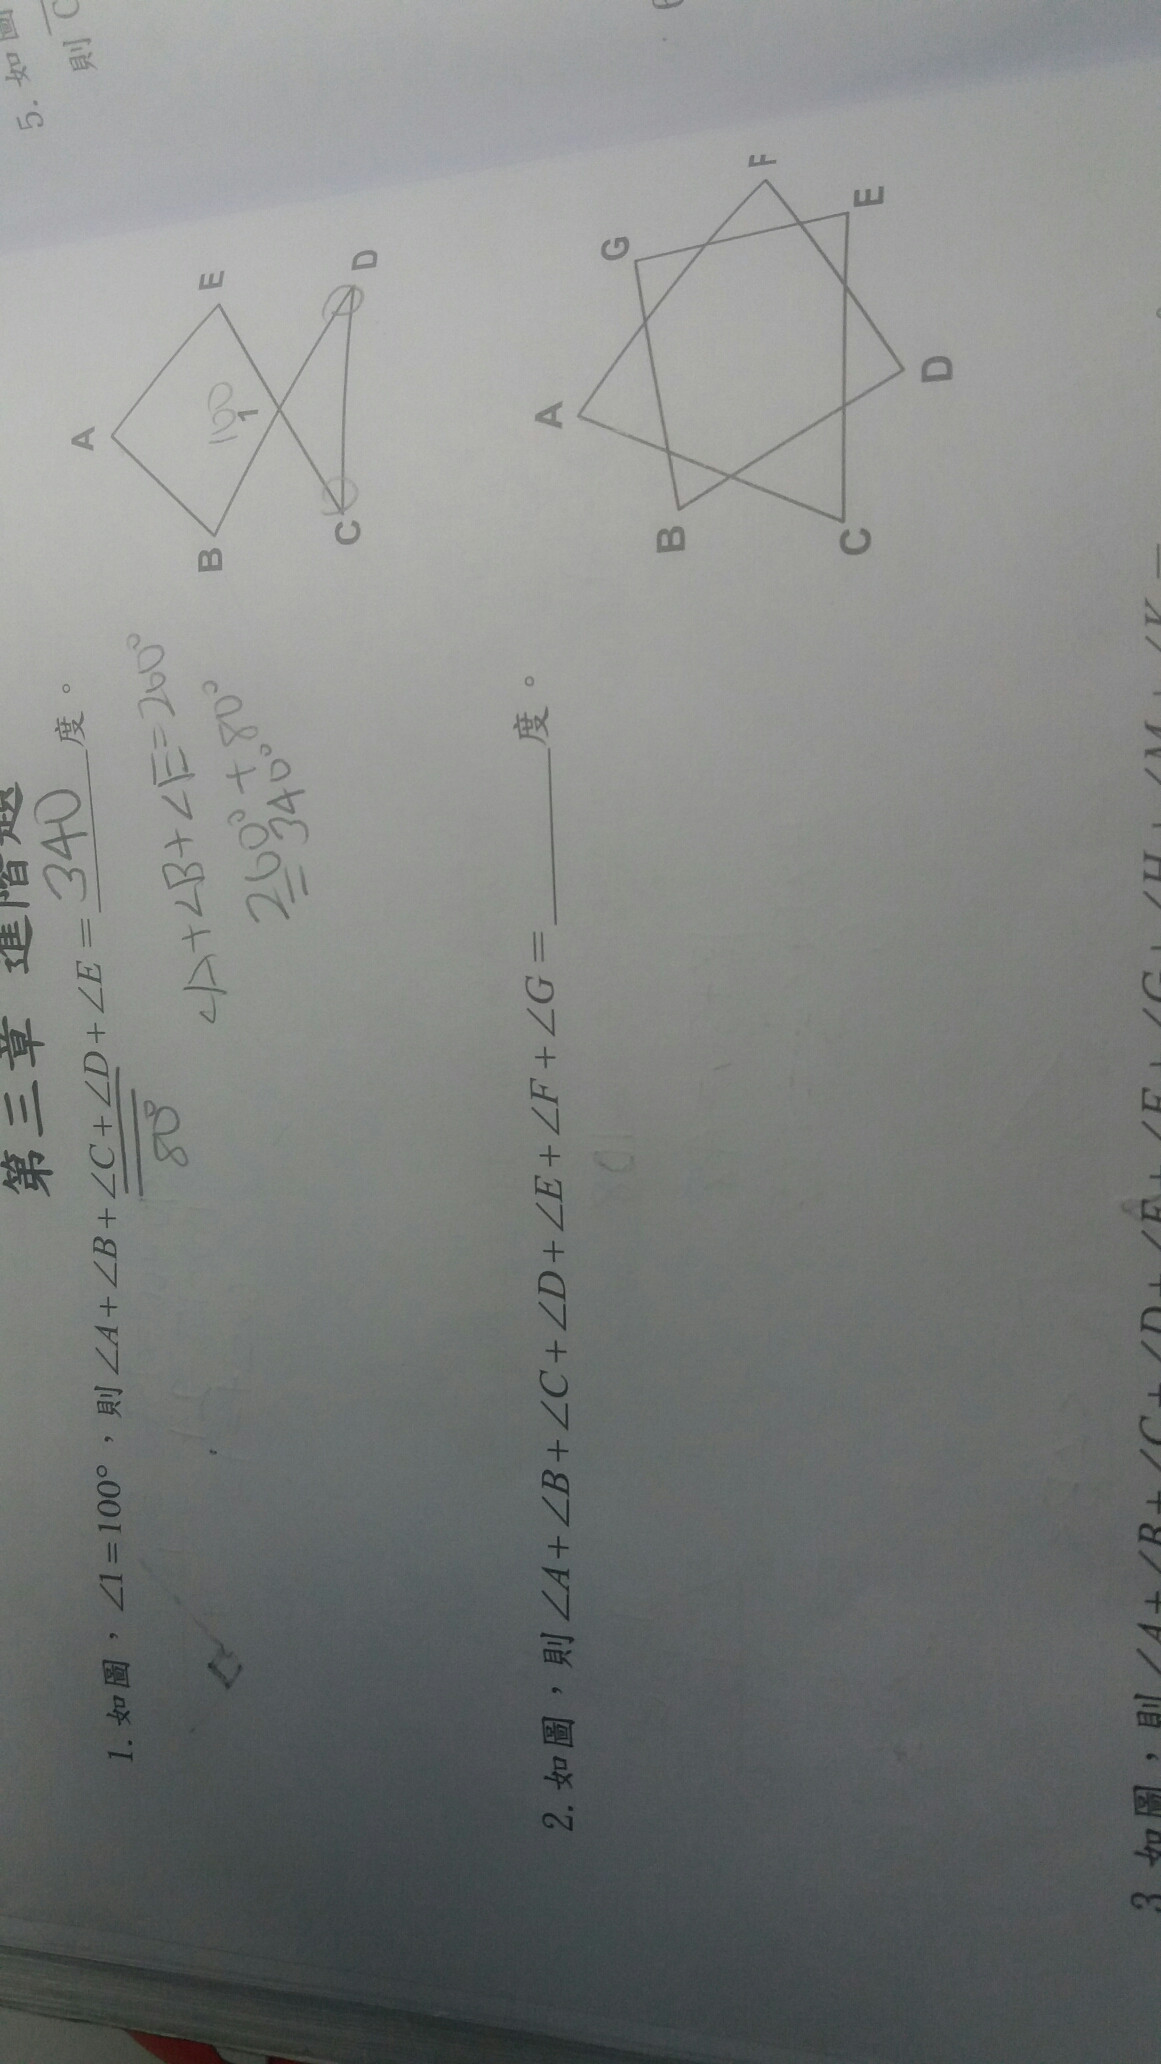 第三章 進階題
1. 如圖，∠1=100°，則∠A+∠B+∠C+∠D+∠E=340度。
80°
∠A+∠B+∠E=260°
260°+80°
=340°
A
B
E
100
1
C
D
2. 如圖，則∠A+∠B+∠C+∠D+∠E+∠F+∠G=______度。
A
G
F
B
C
E
D
3 如圖，則∠A+∠B+∠C+∠D+∠E+∠F+∠G+∠H+∠M+∠K=
5. 如圖
則